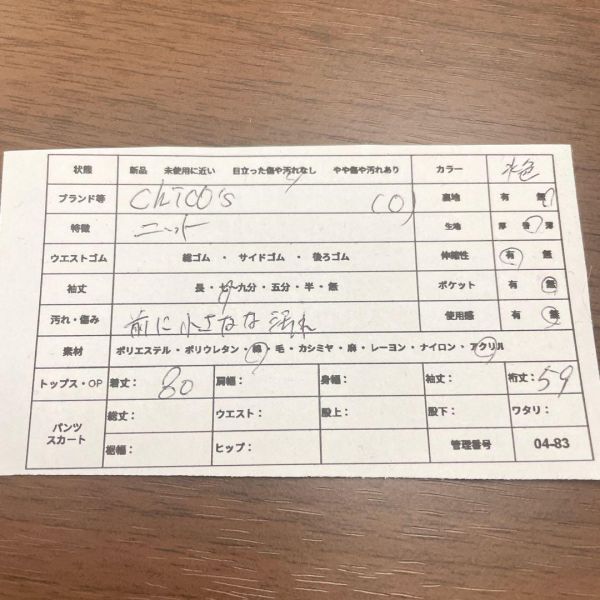 状態 新品 未使用に近い 目立った傷や汚れなし やや傷や汚れあり カラー 水色
ブランド等 Chico's (0) 裏地 有 無
特徴 ニット 生地 厚 普 薄
ウエストゴム 総ゴム ・ サイドゴム ・ 後ろゴム 伸縮性 有 無
袖丈 長・七・九分・五分・半・無 ポケット 有 無
汚れ・傷み 前に小さなな汚れ 使用感 有 無
素材 ポリエステル・ポリウレタン・綿・毛・カシミヤ・麻・レーヨン・ナイロン・アクリル
トップス・OP 着丈: 80 肩幅: 身幅: 袖丈: 裄丈: 59
パンツ スカート 総丈: ウエスト: 股上: 股下: ワタリ:
裾幅: ヒップ: 管理番号 04-83